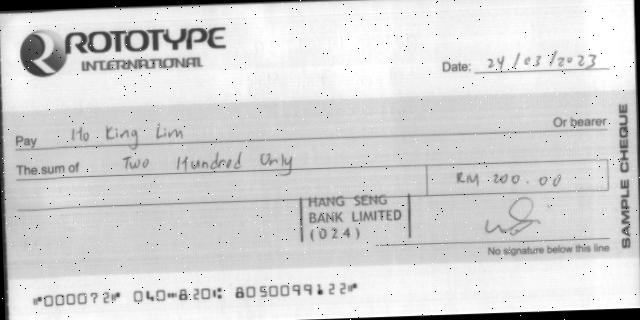 ROTOTYPE
INTERNATIONAL
Date: 24/03/2023
Pay Ho King Lim Or bearer
The sum of Two Hundred Only
RM 200.00
HANG SENG
BANK LIMITED
(024)
No signature below this line
SAMPLE CHEQUE
⑈000072⑈ 040⑉820⑆ 805009912 2⑈